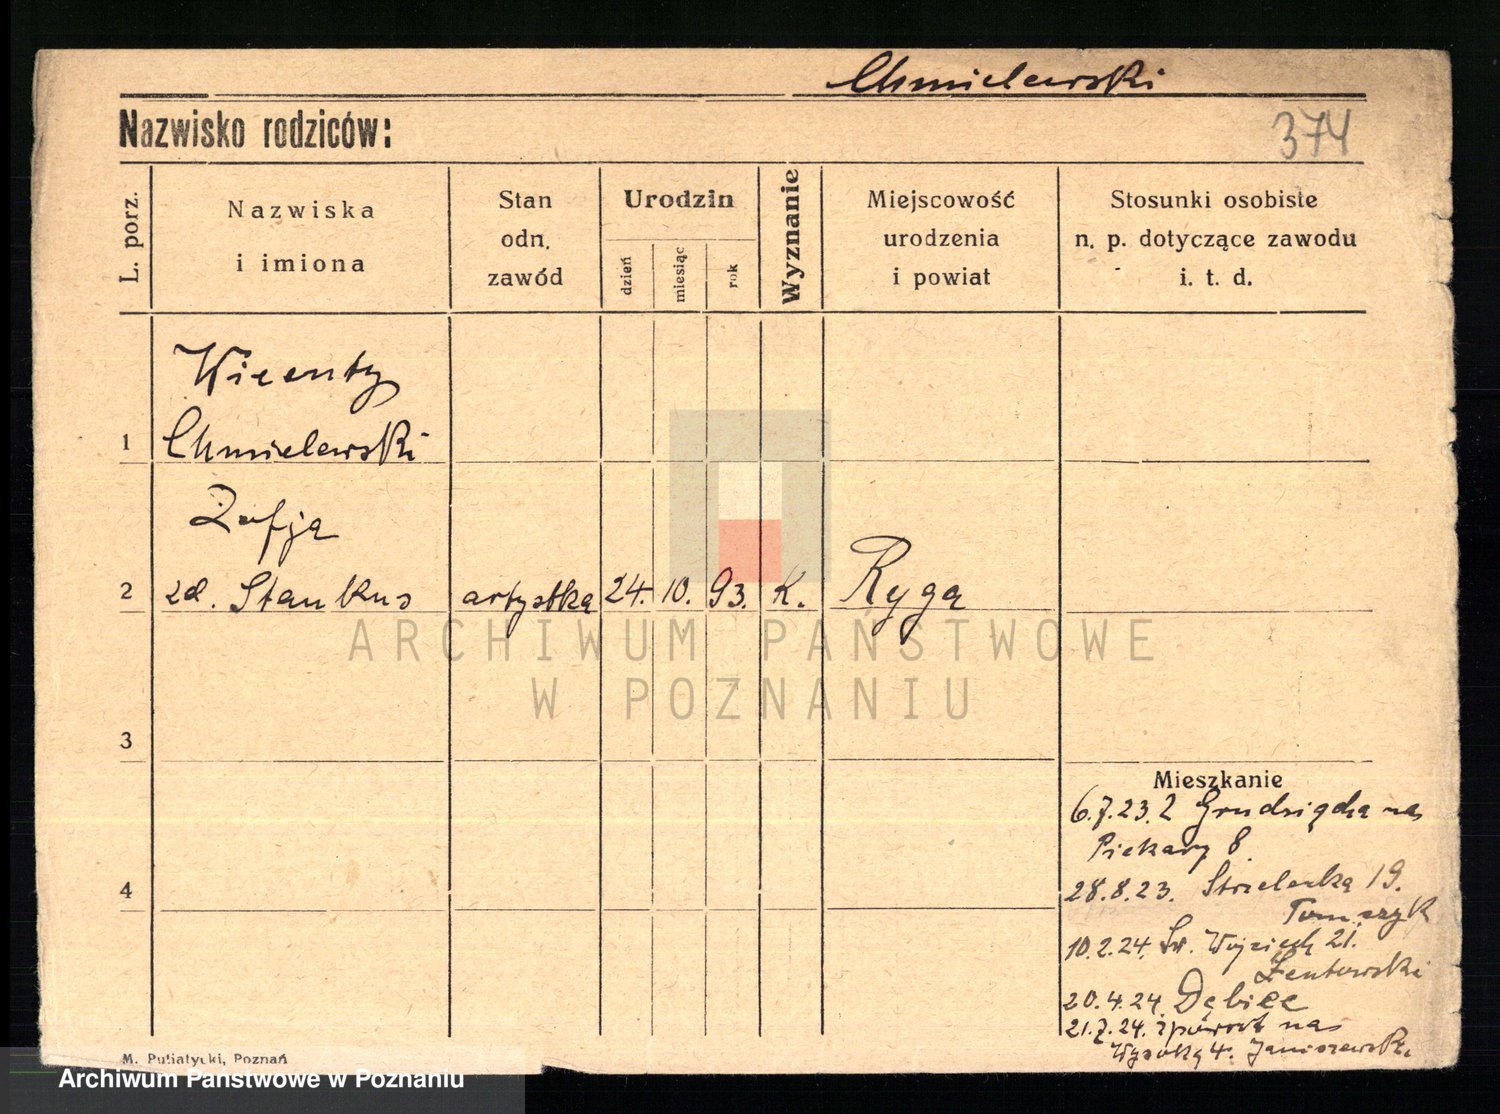 Chmielewski
Nazwisko rodziców:
374
L. porz.
Nazwiska
i imiona
Stan
odn.
zawód
Urodzin
dzień
miesiąc
rok
Wyznanie
Miejscowość
urodzenia
i powiat
Stosunki osobiste
n. p. dotyczące zawodu
i. t. d.
Wicenty
1 Chmielewski
Zofja
2 zd. Stankus artystka 24. 10. 93. K. Ryga
ARCHIWUM PAŃSTWOWE
W POZNANIU
3
Mieszkanie
6.7.23. z Grudziądza na
Piekary 8.
4
28.8.23. Strzelecka 19.
Tomczyk
10.2.24. Św. Wojciech 21.
20.4.24. Dębiec
21.7.24. na
Wysoką 4. Janiszewski.
M. Putiatycki, Poznań
Archiwum Państwowe w Poznaniu